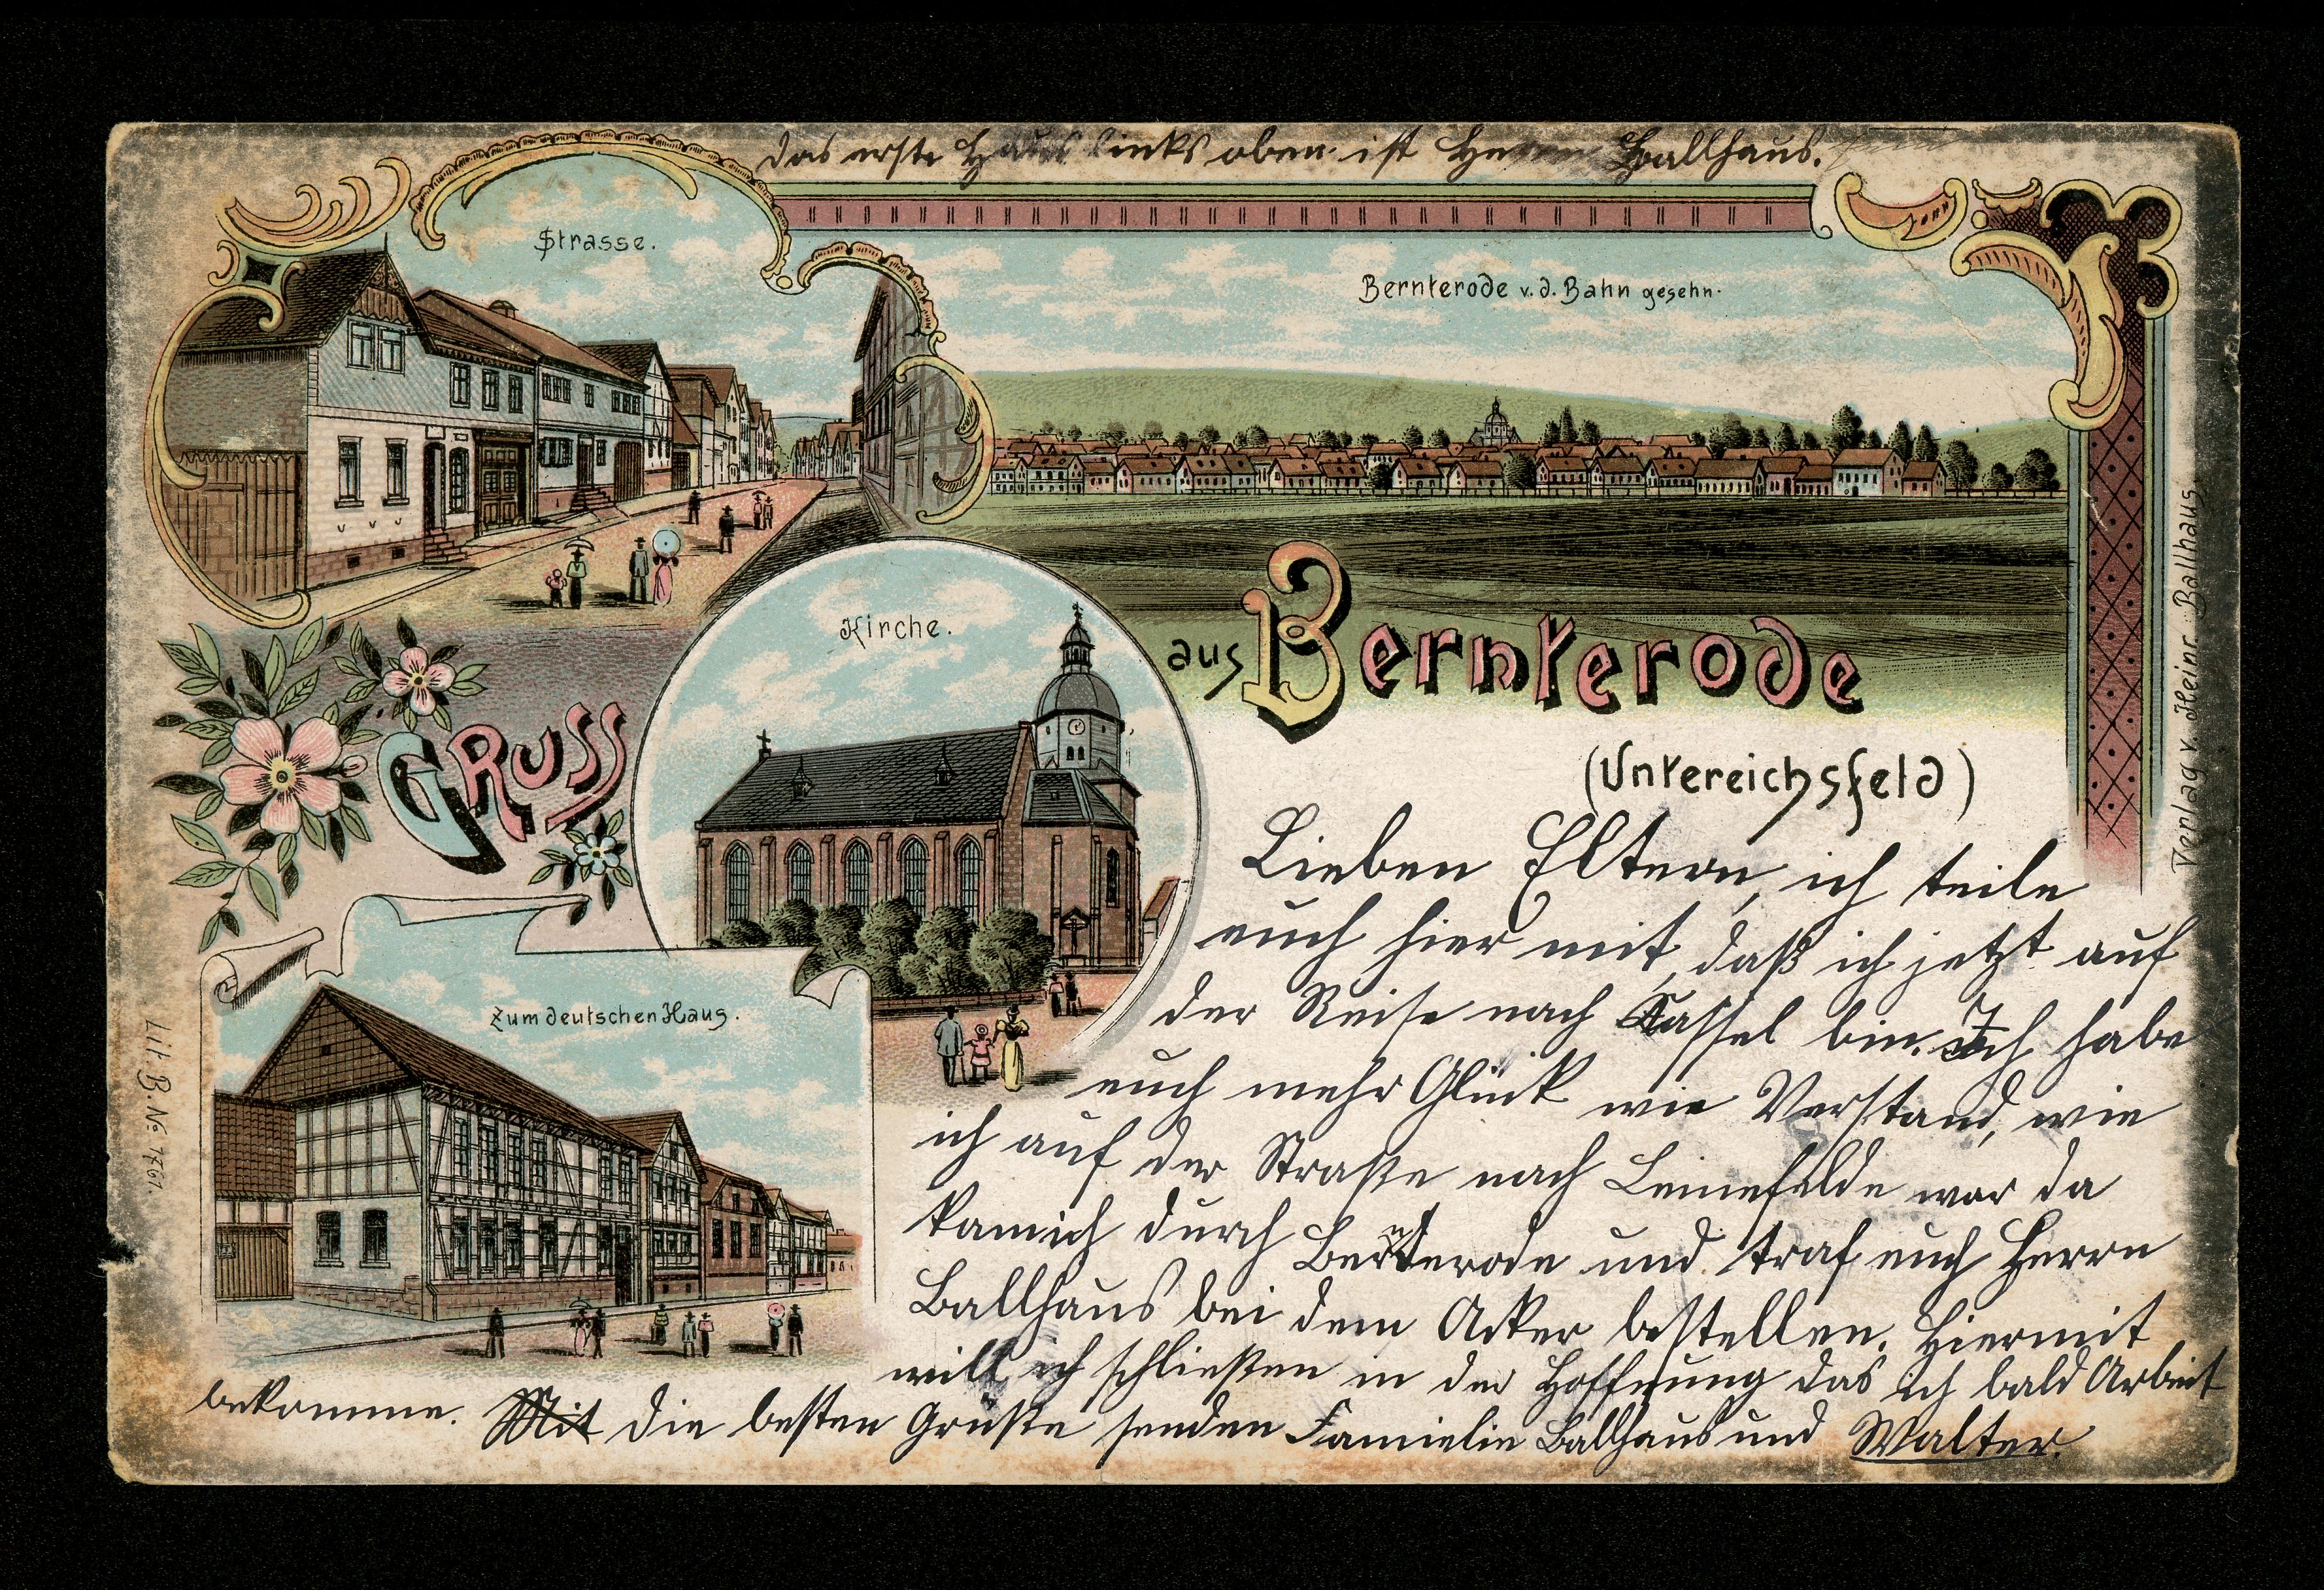 das erste Haus links oben ist Herrn Ballhaus.
Strasse.
Bernterode v. d. Bahn gesehn.
Kirche.
GRUSS
aus Bernterode
(Untereichsfeld)
Zum deutschen Haus.
Verlag v. Heinr. Ballhaus
Lit. B. No 1761.
Lieben Eltern, ich teile
euch hier mit, daß ich jetzt auf
der Reise nach Kassel bin. Ich habe
euch mehr Glück wie Verstand, wie
ich auf der Straße nach Leinefelde war da
kam ich durch Bernterode und traf euch Herrn
Ballhaus bei dem Acker bestellen. Hiermit
will ich schließen in der Hoffnung das ich bald Arbeit
bekomme. Mit die besten Grüße senden Famielie Ballhaus und Walter.